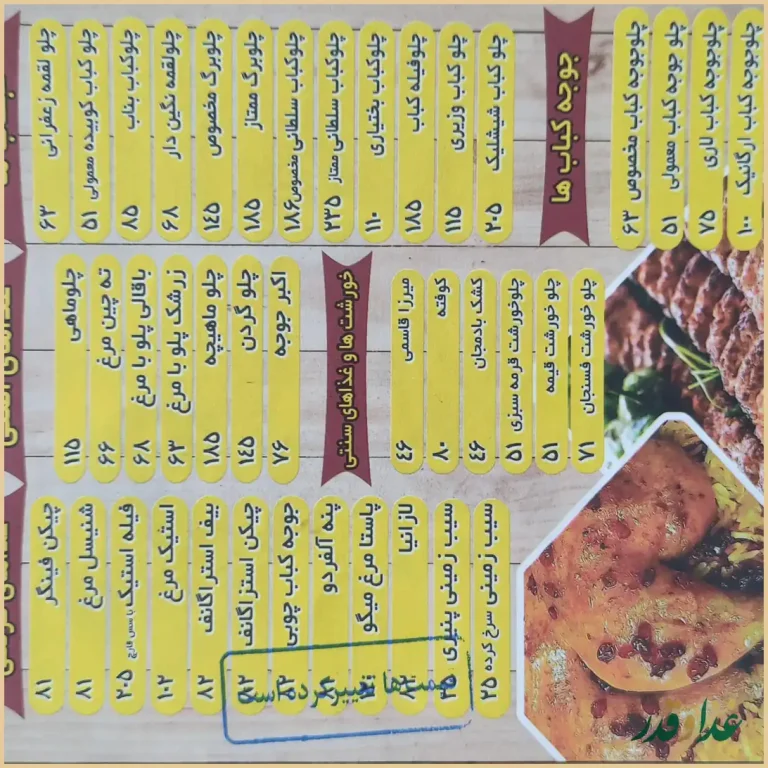 چلو لقمه زعفرانی ۶۳
چلو کباب کوبیده معمولی ۵۱
چلوکباب بناب ۸۵
چلولقمه نگین دار ۶۸
چلوبرگ مخصوص ۱۴۵
چلوبرگ ممتاز ۱۸۵
چلوکباب سلطانی مخصوص ۱۸۶
چلوکباب سلطانی ممتاز ۲۳۵
چلوکباب بختیاری ۱۱۰
چلوفیله کباب ۱۸۵
چلو کباب وزیری ۱۱۵
چلو کباب شیشلیک ۲۰۵
جوجه کباب ها
چلوجوجه کباب مخصوص ۶۳
چلو جوجه کباب معمولی ۵۱
چلوجوجه کباب لاری ۷۵
چلوجوجه کباب ارگانیک ۱۰۰
چلوماهی ۱۱۵
ته چین مرغ ۶۶
باقالی پلو با مرغ ۶۸
زرشک پلو با مرغ ۶۳
چلو ماهیچه ۱۸۵
چلو گردن ۱۴۵
اکبر جوجه ۷۶
خورشت ها و غذاهای سنتی
میرزا قاسمی ۴۶
کوفته ۸۰
کشک بادمجان ۴۶
چلوخورشت قرمه سبزی ۵۱
چلو خورشت قیمه ۵۱
چلو خورشت فسنجان ۷۱
چیکن فینگر ۸۱
شنیسل مرغ ۸۱
فیله استیک با سس قارچ ۲۰۵
استیک مرغ ۱۰۲
بیف استراگانف ۸۲
چیکن استراگانف
جوجه کباب چوبی
پنه آلفردو
پاستا مرغ میگو
لازانیا
سیب زمینی پنیری ۳۵
سیب زمینی سرخ کرده ۲۵
قیمت‌ها تغییر کرده است